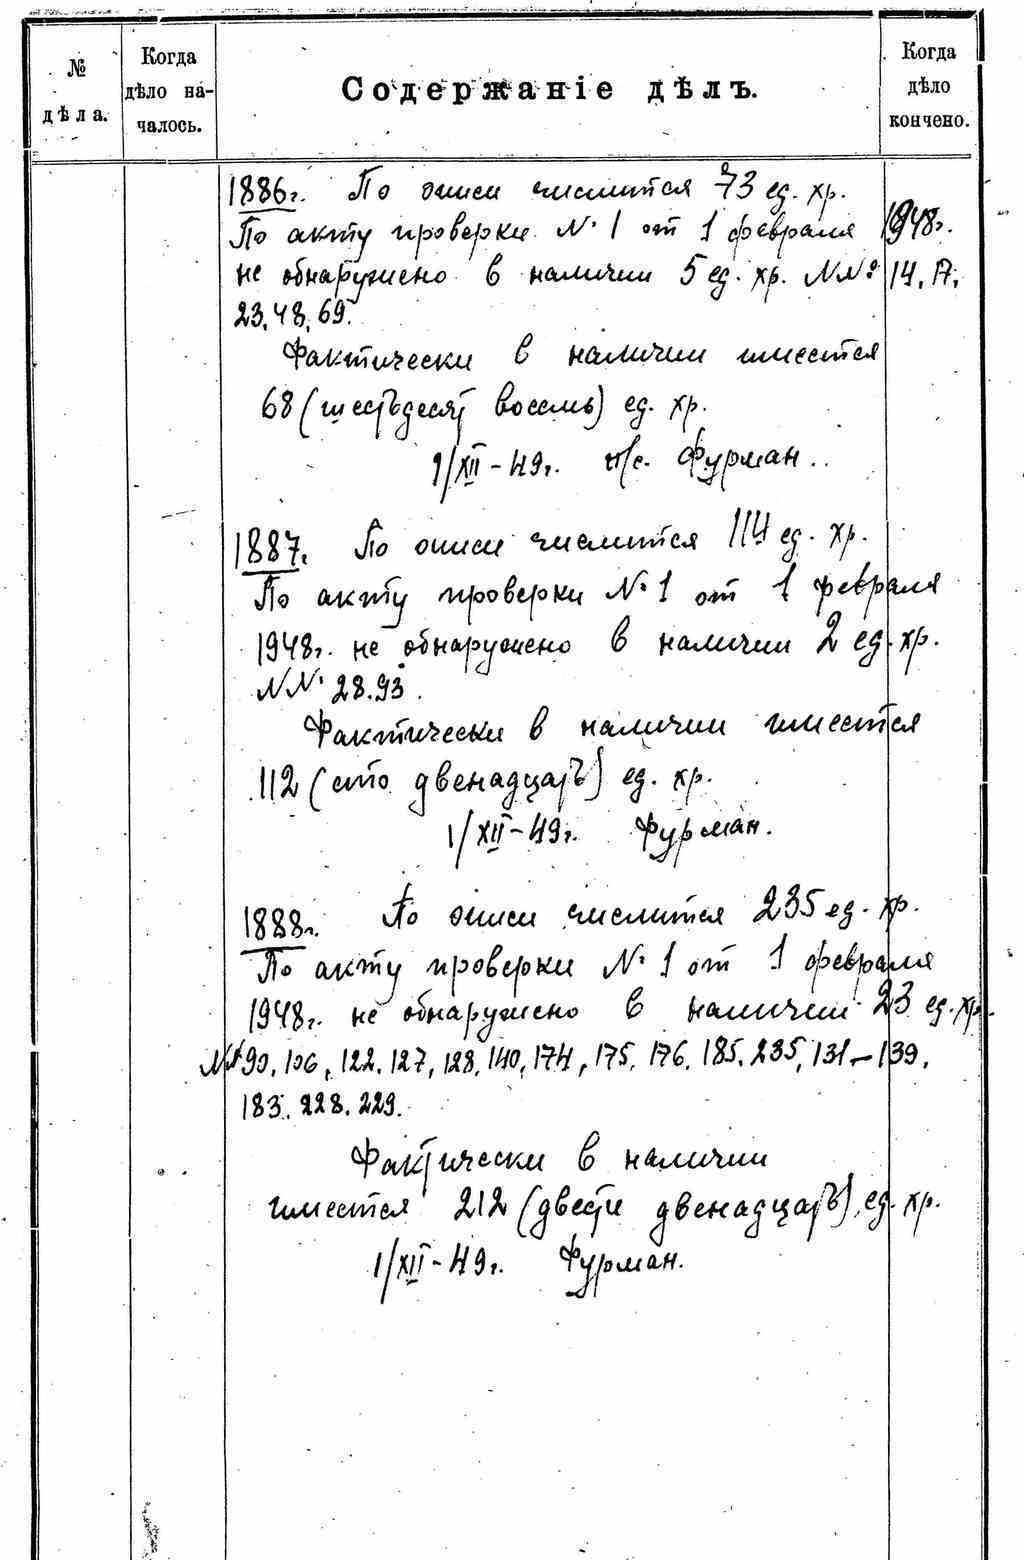 № дѣла.
Когда дѣло на-чалось.
Содержаніе дѣлъ.
Когда дѣло кончено.
1886г. По описи числится 73 ед. хр.
По акту проверки № 1 от 1 февраля 1948г.
не обнаружено в наличии 5 ед. хр. №№ 14, 17,
23, 48, 69.
Фактически в наличии имеется
68 (шестьдесят восемь) ед. хр.
1/XII-49г. Фурман.
1887г. По описи числится 114 ед. хр.
По акту проверки № 1 от 1 февраля
1948г. не обнаружено в наличии 2 ед. хр.
№№ 28. 93.
Фактически в наличии имеется
112 (сто двенадцать) ед. хр.
1/XII-49г. Фурман.
1888г. По описи числится 235 ед. хр.
По акту проверки № 1 от 1 февраля
1948г. не обнаружено в наличии 23 ед. хр.
№№ 99, 106, 122, 127, 128, 140, 174, 175, 176, 185, 235, 131–139,
183, 228, 229.
Фактически в наличии
имеется 212 (двести двенадцать) ед. хр.
1/XII-49г. Фурман.